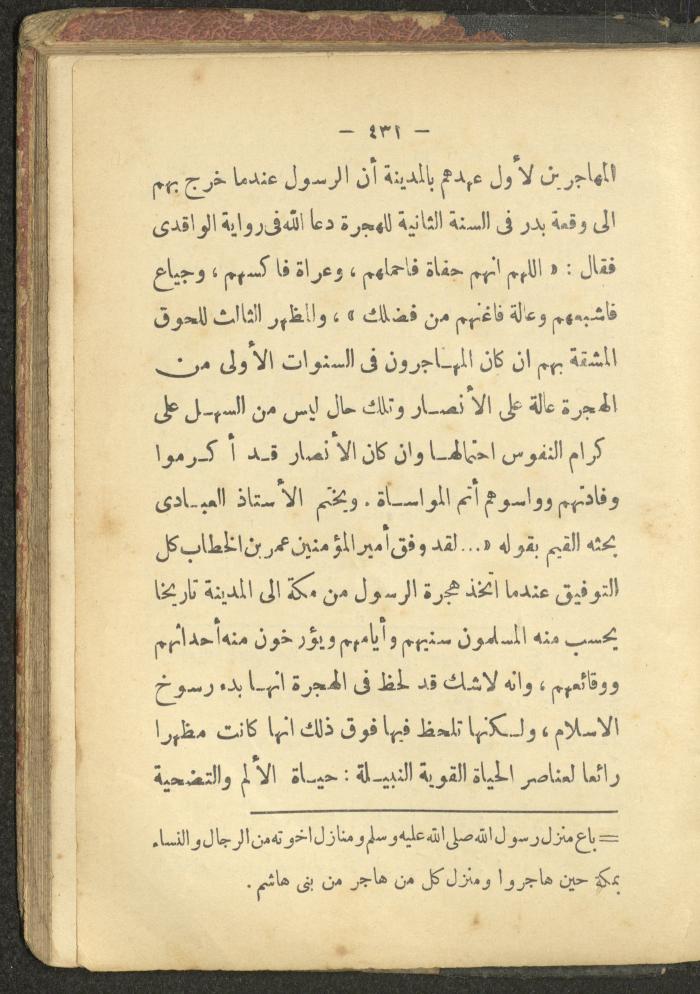 — ٤٣١ —
المهاجرين لأول عهدهم بالمدينة أن الرسول عندما خرج بهم
الى وقعة بدر فى السنة الثانية للهجرة دعا الله فى رواية الواقدى
فقال : « اللهم انهم حفاة فاحملهم ، وعراة فاكسهم ، وجياع
فاشبعهم وعالة فاغنهم من فضلك » ، والمظهر الثالث للحوق
المشقة بهم ان كان المهاجرون فى السنوات الأولى من
الهجرة عالة على الأنصار وتلك حال ليس من السهل على
كرام النفوس احتمالها وان كان الأنصار قد أكرموا
وفادتهم وواسوهم أتم المواساة . ويختم الأستاذ العبادى
بحثه القيم بقوله «... لقد وفق أمير المؤمنين عمر بن الخطاب كل
التوفيق عندما اتخذ هجرة الرسول من مكة الى المدينة تاريخا
يحسب منه المسلمون سنيهم وأيامهم ويؤرخون منه أحداثهم
ووقائعهم ، وانه لاشك قد لحظ فى الهجرة انها بدء رسوخ
الاسلام ، ولكنها تلحظ فيها فوق ذلك انها كانت مظهرا
رائعا لعناصر الحياة القوية النبيلة : حياة الألم والتضحية
= باع منزل رسول الله صلى الله عليه وسلم ومنازل اخوته من الرجال والنساء
بمكة حين هاجروا ومنزل كل من هاجر من بنى هاشم .